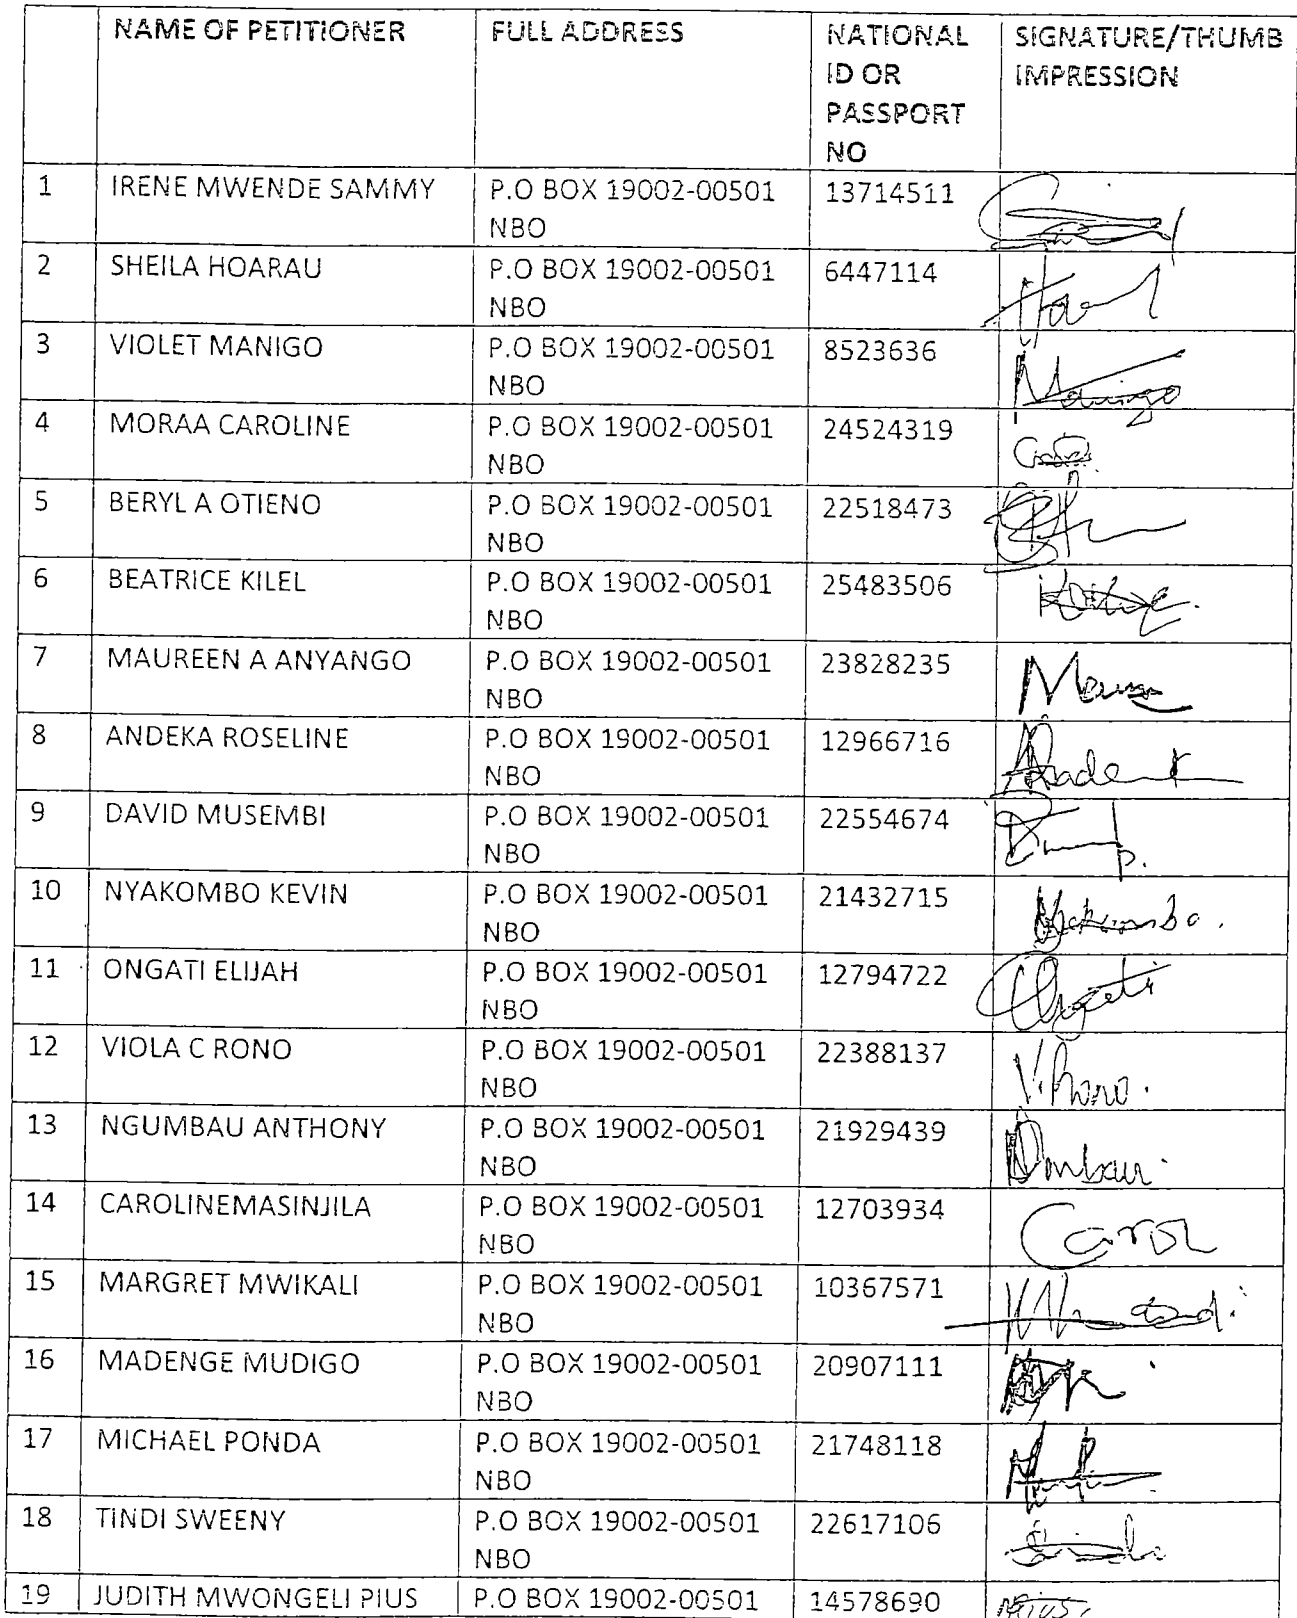 NAME OF PETITIONER FULL ADDRESS NATIONAL SIGNATURE/THUMB
ID OR IMPRESSION
PASSPORT
NO
1 IRENE MWENDE SAMMY P.O BOX 19002-00501 13714511
NBO
2 SHEILA HOARAU P.O BOX 19002-00501 6447114
NBO
3 VIOLET MANIGO P.O BOX 19002-00501 8523636
NBO
4 MORAA CAROLINE P.O BOX 19002-00501 24524319
NBO
5 BERYL A OTIENO P.O BOX 19002-00501 22518473
NBO
6 BEATRICE KILEL P.O BOX 19002-00501 25483506
NBO
7 MAUREEN A ANYANGO P.O BOX 19002-00501 23828235
NBO
8 ANDEKA ROSELINE P.O BOX 19002-00501 12966716
NBO
9 DAVID MUSEMBI P.O BOX 19002-00501 22554674
NBO
10 NYAKOMBO KEVIN P.O BOX 19002-00501 21432715
NBO
11 ONGATI ELIJAH P.O BOX 19002-00501 12794722
NBO
12 VIOLA C RONO P.O BOX 19002-00501 22388137
NBO V. Rono.
13 NGUMBAU ANTHONY P.O BOX 19002-00501 21929439
NBO
14 CAROLINEMASINJILA P.O BOX 19002-00501 12703934
NBO Carol
15 MARGRET MWIKALI P.O BOX 19002-00501 10367571
NBO
16 MADENGE MUDIGO P.O BOX 19002-00501 20907111
NBO
17 MICHAEL PONDA P.O BOX 19002-00501 21748118
NBO
18 TINDI SWEENY P.O BOX 19002-00501 22617106
NBO
19 JUDITH MWONGELI PIUS P.O BOX 19002-00501 14578690